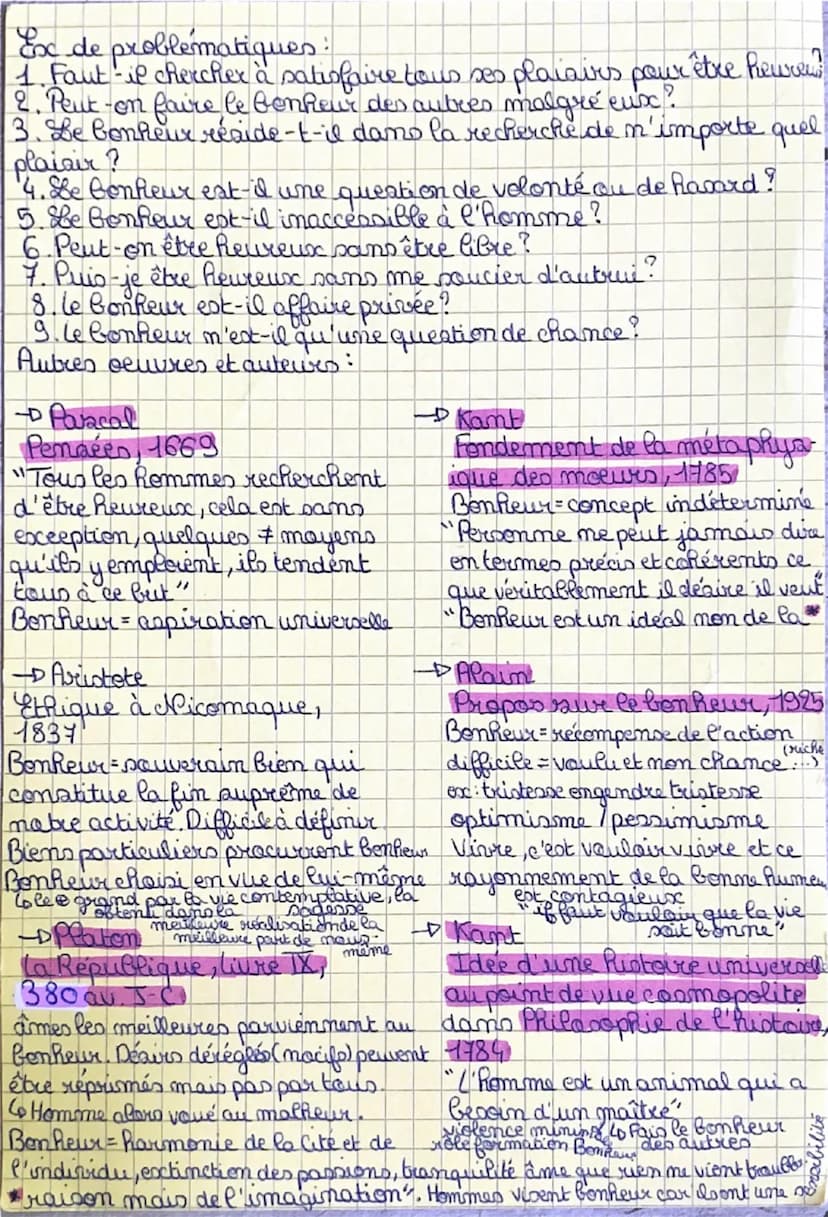 Ex de problématiques :
1. Faut-il chercher à satisfaire tous ses plaisirs pour être heureux?
2. Peut-on faire le bonheur des autres malgré eux?
3. Le bonheur réside-t-il dans la recherche de n'importe quel
plaisir ?
4. Le bonheur est-il une question de volonté ou de hasard ?
5. Le bonheur est-il inaccessible à l'homme ?
6. Peut-on être heureux sans être libre ?
7. Puis-je être heureux sans me soucier d'autrui ?
8. le bonheur est-il affaire privée ?
9. Le bonheur n'est-il qu'une question de chance ?
Autres oeuvres et auteurs :
→ Pascal
Pensées, 1669
"Tous les hommes recherchent
d'être heureux, cela est sans
exception, quelques ≠ moyens
qu'ils y emploient, ils tendent
tous à ce but"
Bonheur = aspiration universelle
→ Kant
Fondement de la métaphys-
ique des moeurs, 1785
Bonheur = concept indéterminé
"Personne ne peut jamais dire
en termes précis et cohérents ce
que véritablement il désire il veut"
"Bonheur est un idéal non de la *
→ Aristote
Ethique à Nicomaque,
1837
Bonheur = souverain bien qui
constitue la fin suprême de
notre activité. Difficile à définir
Biens particuliers procurent bonheur
Bonheur choisi en vue de lui-même
↳ le ⊕ grand par la vie contemplative, la
sagesse
obtenu dans la meilleure réalisation de la
meilleure part de nous-
même
→ Alain
Propos sur le bonheur, 1925
Bonheur = récompense de l'action
difficile = voulu et non chance (riche...)
ex : tristesse engendre tristesse
optimisme / pessimisme
Vivre, c'est vouloir vivre et ce
rayonnement de la bonne humeur
est contagieux
"il faut vouloir que la vie
soit bonne"
→ Platon
La République, livre IX,
380 av. J-C
âmes les meilleures parviennent au
bonheur. Désirs déréglés (nocifs) peuvent
être réprimés mais pas par tous.
↳ Homme alors voué au malheur.
Bonheur = harmonie de la Cité et de
l'individu, extinction des passions, tranquilité âme que rien ne vient troubler.
→ Kant
Idée d'une histoire universelle
au point de vue cosmopolite
dans Philosophie de l'histoire,
1784
"L'homme est un animal qui a
besoin d'un maître"
violence ↳ Fais le bonheur
des autres
rôle formation Bonheur
* raison mais de l'imagination". Hommes visent bonheur car ils ont une sensibilité